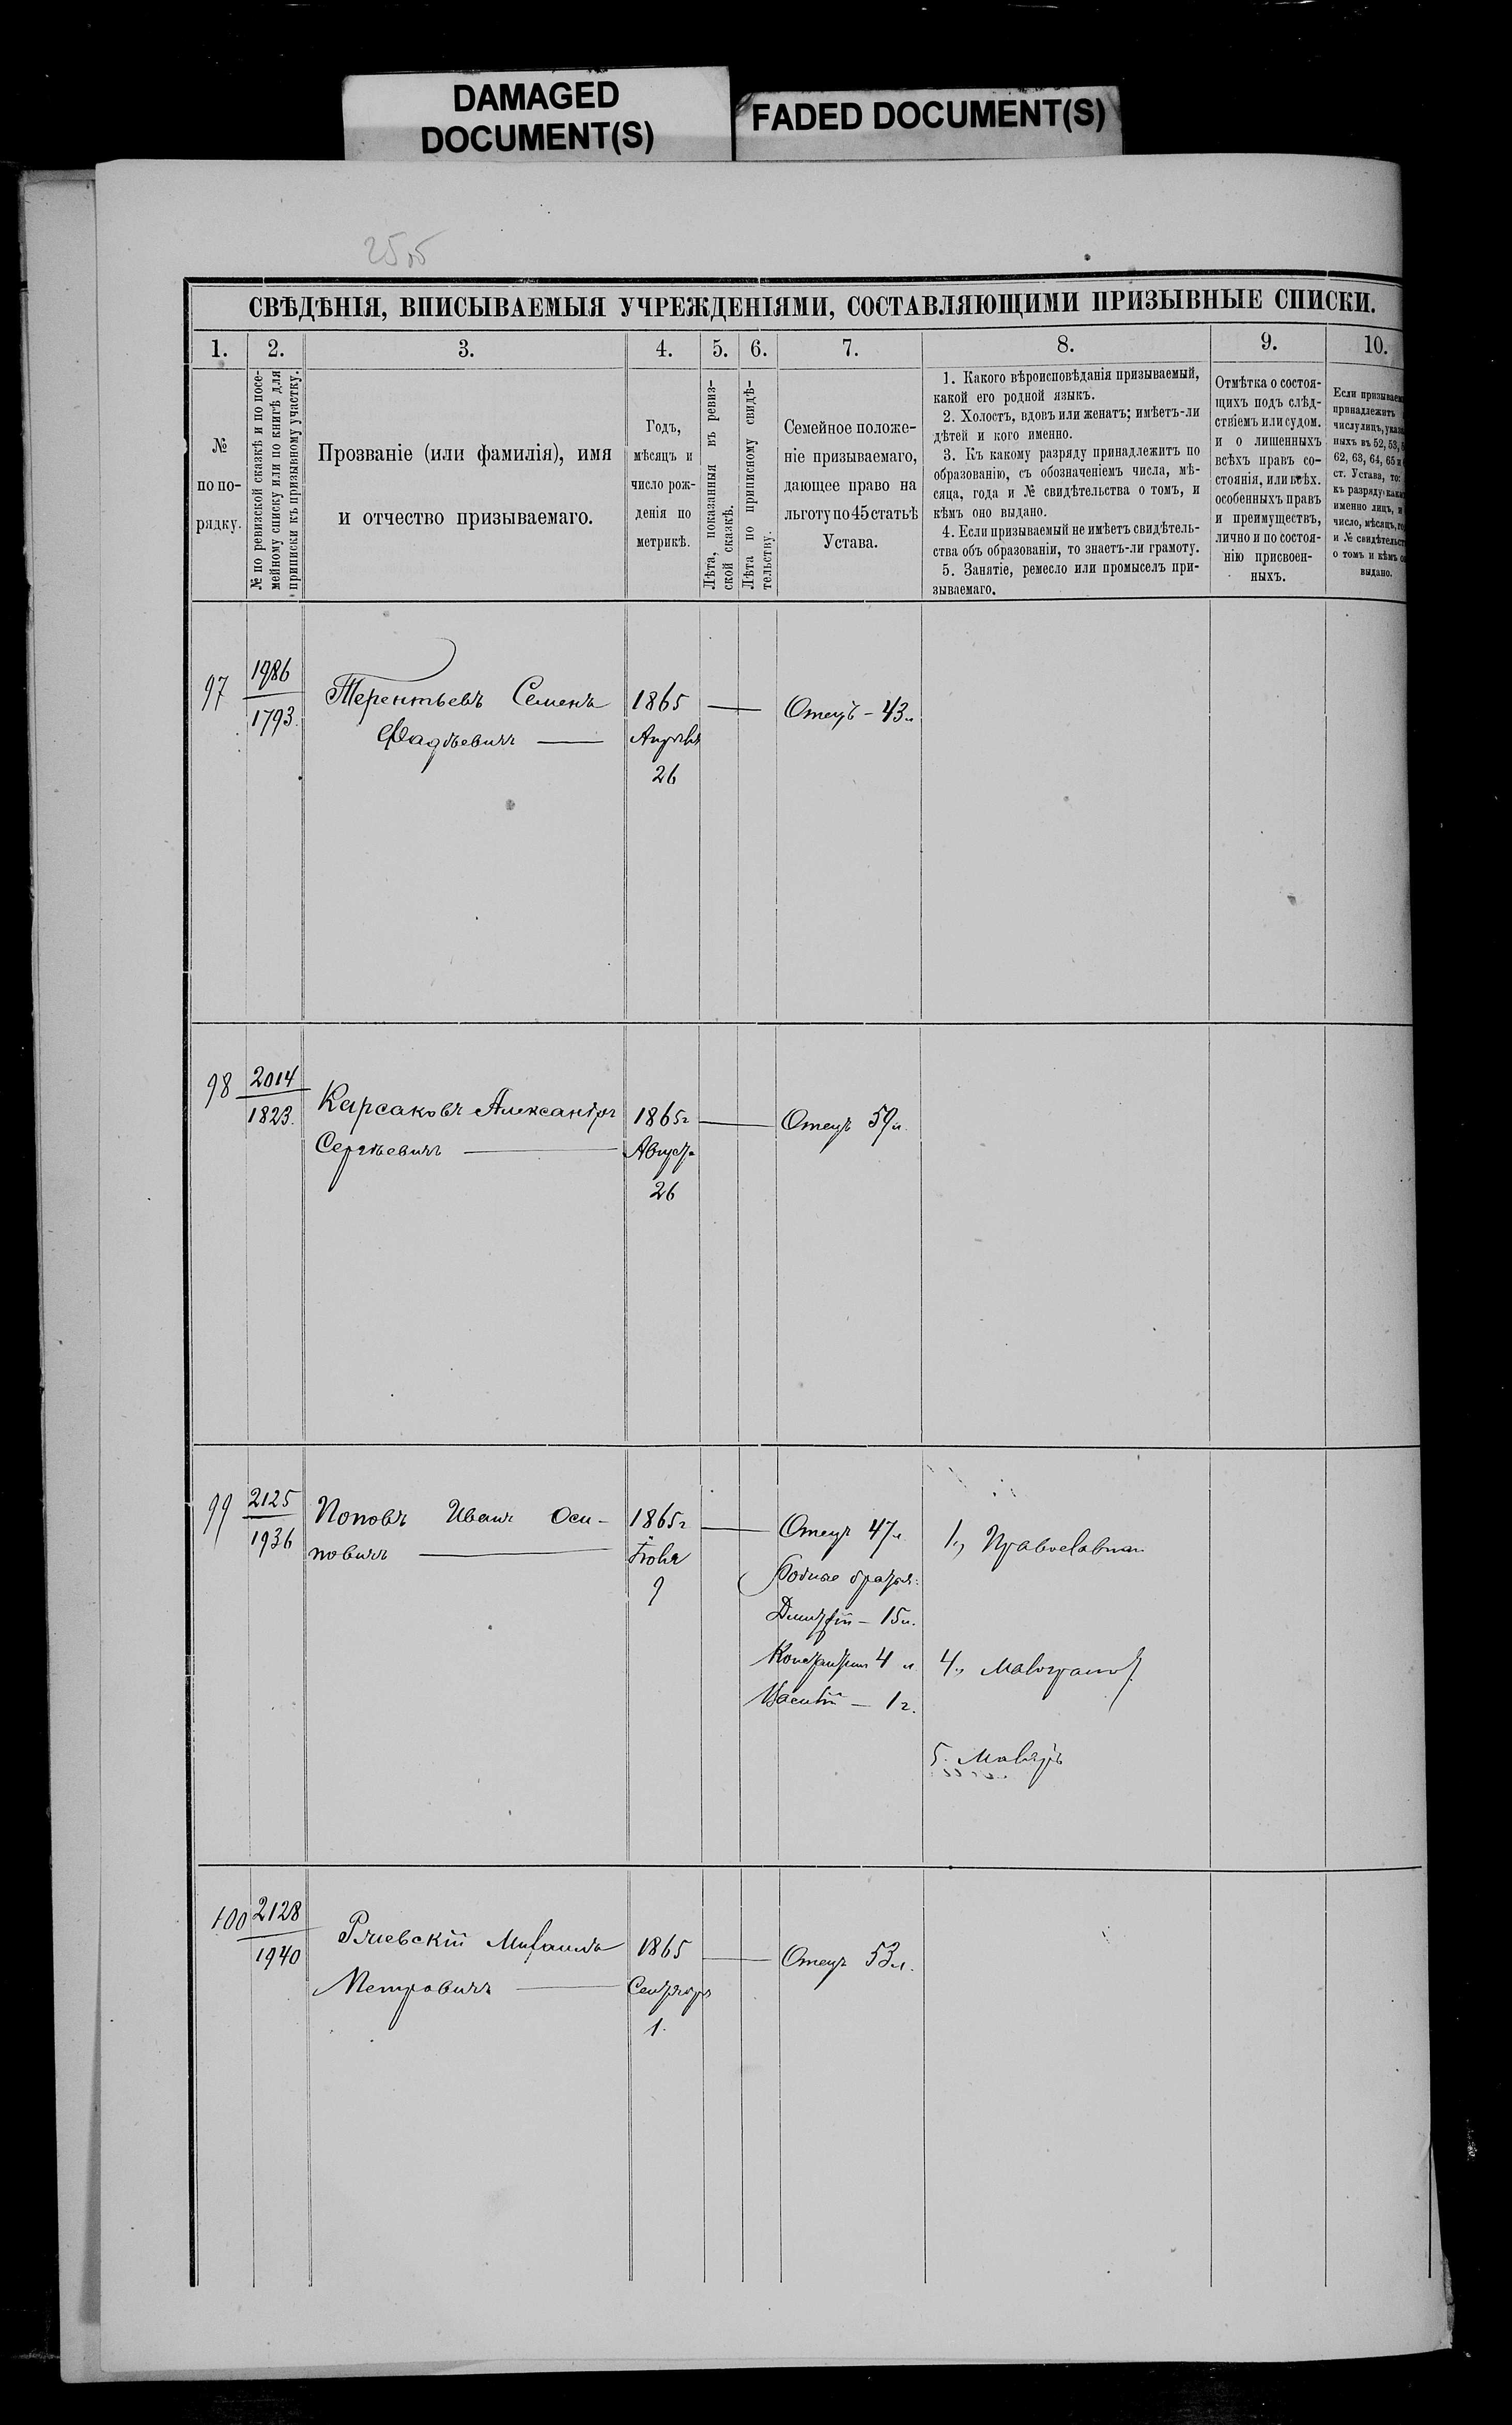 DAMAGED
DOCUMENT(S)
FADED DOCUMENT(S)
СВѢДѢНІЯ, ВПИСЫВАЕМЫЯ УЧРЕЖДЕНІЯМИ, СОСТАВЛЯЮЩИМИ ПРИЗЫВНЫЕ СПИСКИ.
1. 2. 3. 4. 5. 6. 7. 8. 9. 10.
№
по по-
рядку.
№ по ревизской сказкѣ и по посе-
мейному списку или по книгѣ для
приписки къ призывному участку.
Прозваніе (или фамилія), имя
и отчество призываемаго.
Годъ,
мѣсяцъ и
число рож-
денія по
метрикѣ.
Лѣта, показанныя въ ревиз-
ской сказкѣ.
Лѣта по приписному свидѣ-
тельству.
Семейное положе-
ніе призываемаго,
дающее право на
льготу по 45 статьѣ
Устава.
1. Какого вѣроисповѣданія призываемый,
какой его родной языкъ.
2. Холостъ, вдовъ или женатъ; имѣетъ-ли
дѣтей и кого именно.
3. Къ какому разряду принадлежитъ по
образованію, съ обозначеніемъ числа, мѣ-
сяца, года и № свидѣтельства о томъ, и
кѣмъ оно выдано.
4. Если призываемый не имѣетъ свидѣтель-
ства объ образованіи, то знаетъ-ли грамоту.
5. Занятіе, ремесло или промыселъ при-
зываемаго.
Отмѣтка о состоя-
щихъ подъ слѣд-
ствіемъ или судом.
и о лишенныхъ
всѣхъ правъ со-
стоянія, или всѣх.
особенныхъ правъ
и преимуществъ,
лично и по состоя-
нію присвоен-
ныхъ.
Если призываем
принадлежитъ
числу лицъ, указ
ныхъ въ 52, 53,
62, 63, 64, 65 и
ст. Устава, то:
къ разряду как
именно лицъ, и
число, мѣсяцъ, го
и № свидѣтельст
о томъ и кѣмъ о
выдано.
97 1986 Терентьевъ Семенъ 1865 — Отецъ - 43 л
1793. Фадѣевичъ — Апрѣля
26
98 2014 Карсаковъ Александръ 1865 г — Отецъ 59 л.
1823. Сергѣевичъ — Августа
26
99 2125 Поповъ Иванъ Оси- 1865 г — Отецъ 47 л 1., Православнаго
1936 повичъ — Іюля Родные братья:
9 Дмитрій - 15 л.
Константинъ 4 л 4., Малограмот.
Василій - 1 г.
5. Маляръ
100 2128 Ржевскій Михаилъ 1865 — Отецъ 53 л.
1940 Петровичъ — Сентября
1.